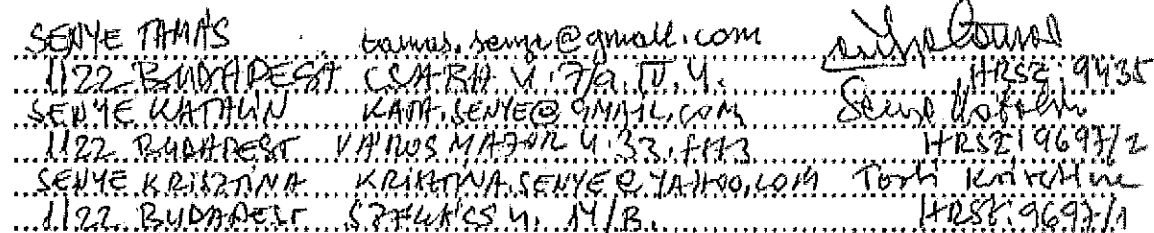 SENYE TAMÁS tamas.senye@gmail.com
1122 BUDAPEST CSABA U. 7/a. IV. 4. HRSZ: 9435
SENYE KATALIN KATA.SENYE@GMAIL.COM Senye Katalin
1122 BUDAPEST VÁROSMAJOR U. 33. HRSZ: 9697/2
SENYE KRISZTINA KRISZTINA.SENYE@YAHOO.COM Krisztina
1122 BUDAPEST U. 14/B. HRSZ: 9697/1